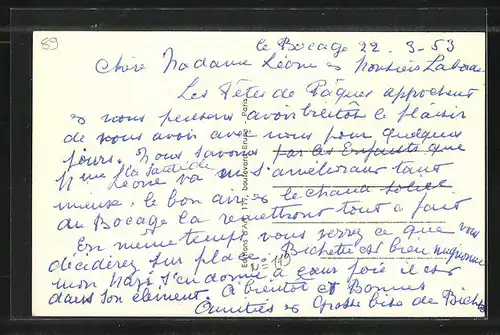 89
le Bocage 22 - 3 - 53
Chère Madame Léone & Monsieur Laborde
Les Fêtes de Pâques approchent
& nous pensons avoir bientôt le plaisir
de vous avoir avec nous pour quelques
jours. Nous savons par les Enfants que
la santé de
Mme Léone va en s'améliorant tant
mieux, le bon air & le chaud soleil
du Bocage la remettront tout à fait
En même temps vous verrez ce que vous
déciderez sur place. Bichette est bien mignonne
mon mari s'en donne à cœur joie il est
dans son élément. A bientôt et Bonnes
Amitiés & Grosse bise de Bichette
Editions d'Art, 177, boulevard Brune - Paris
N° 119